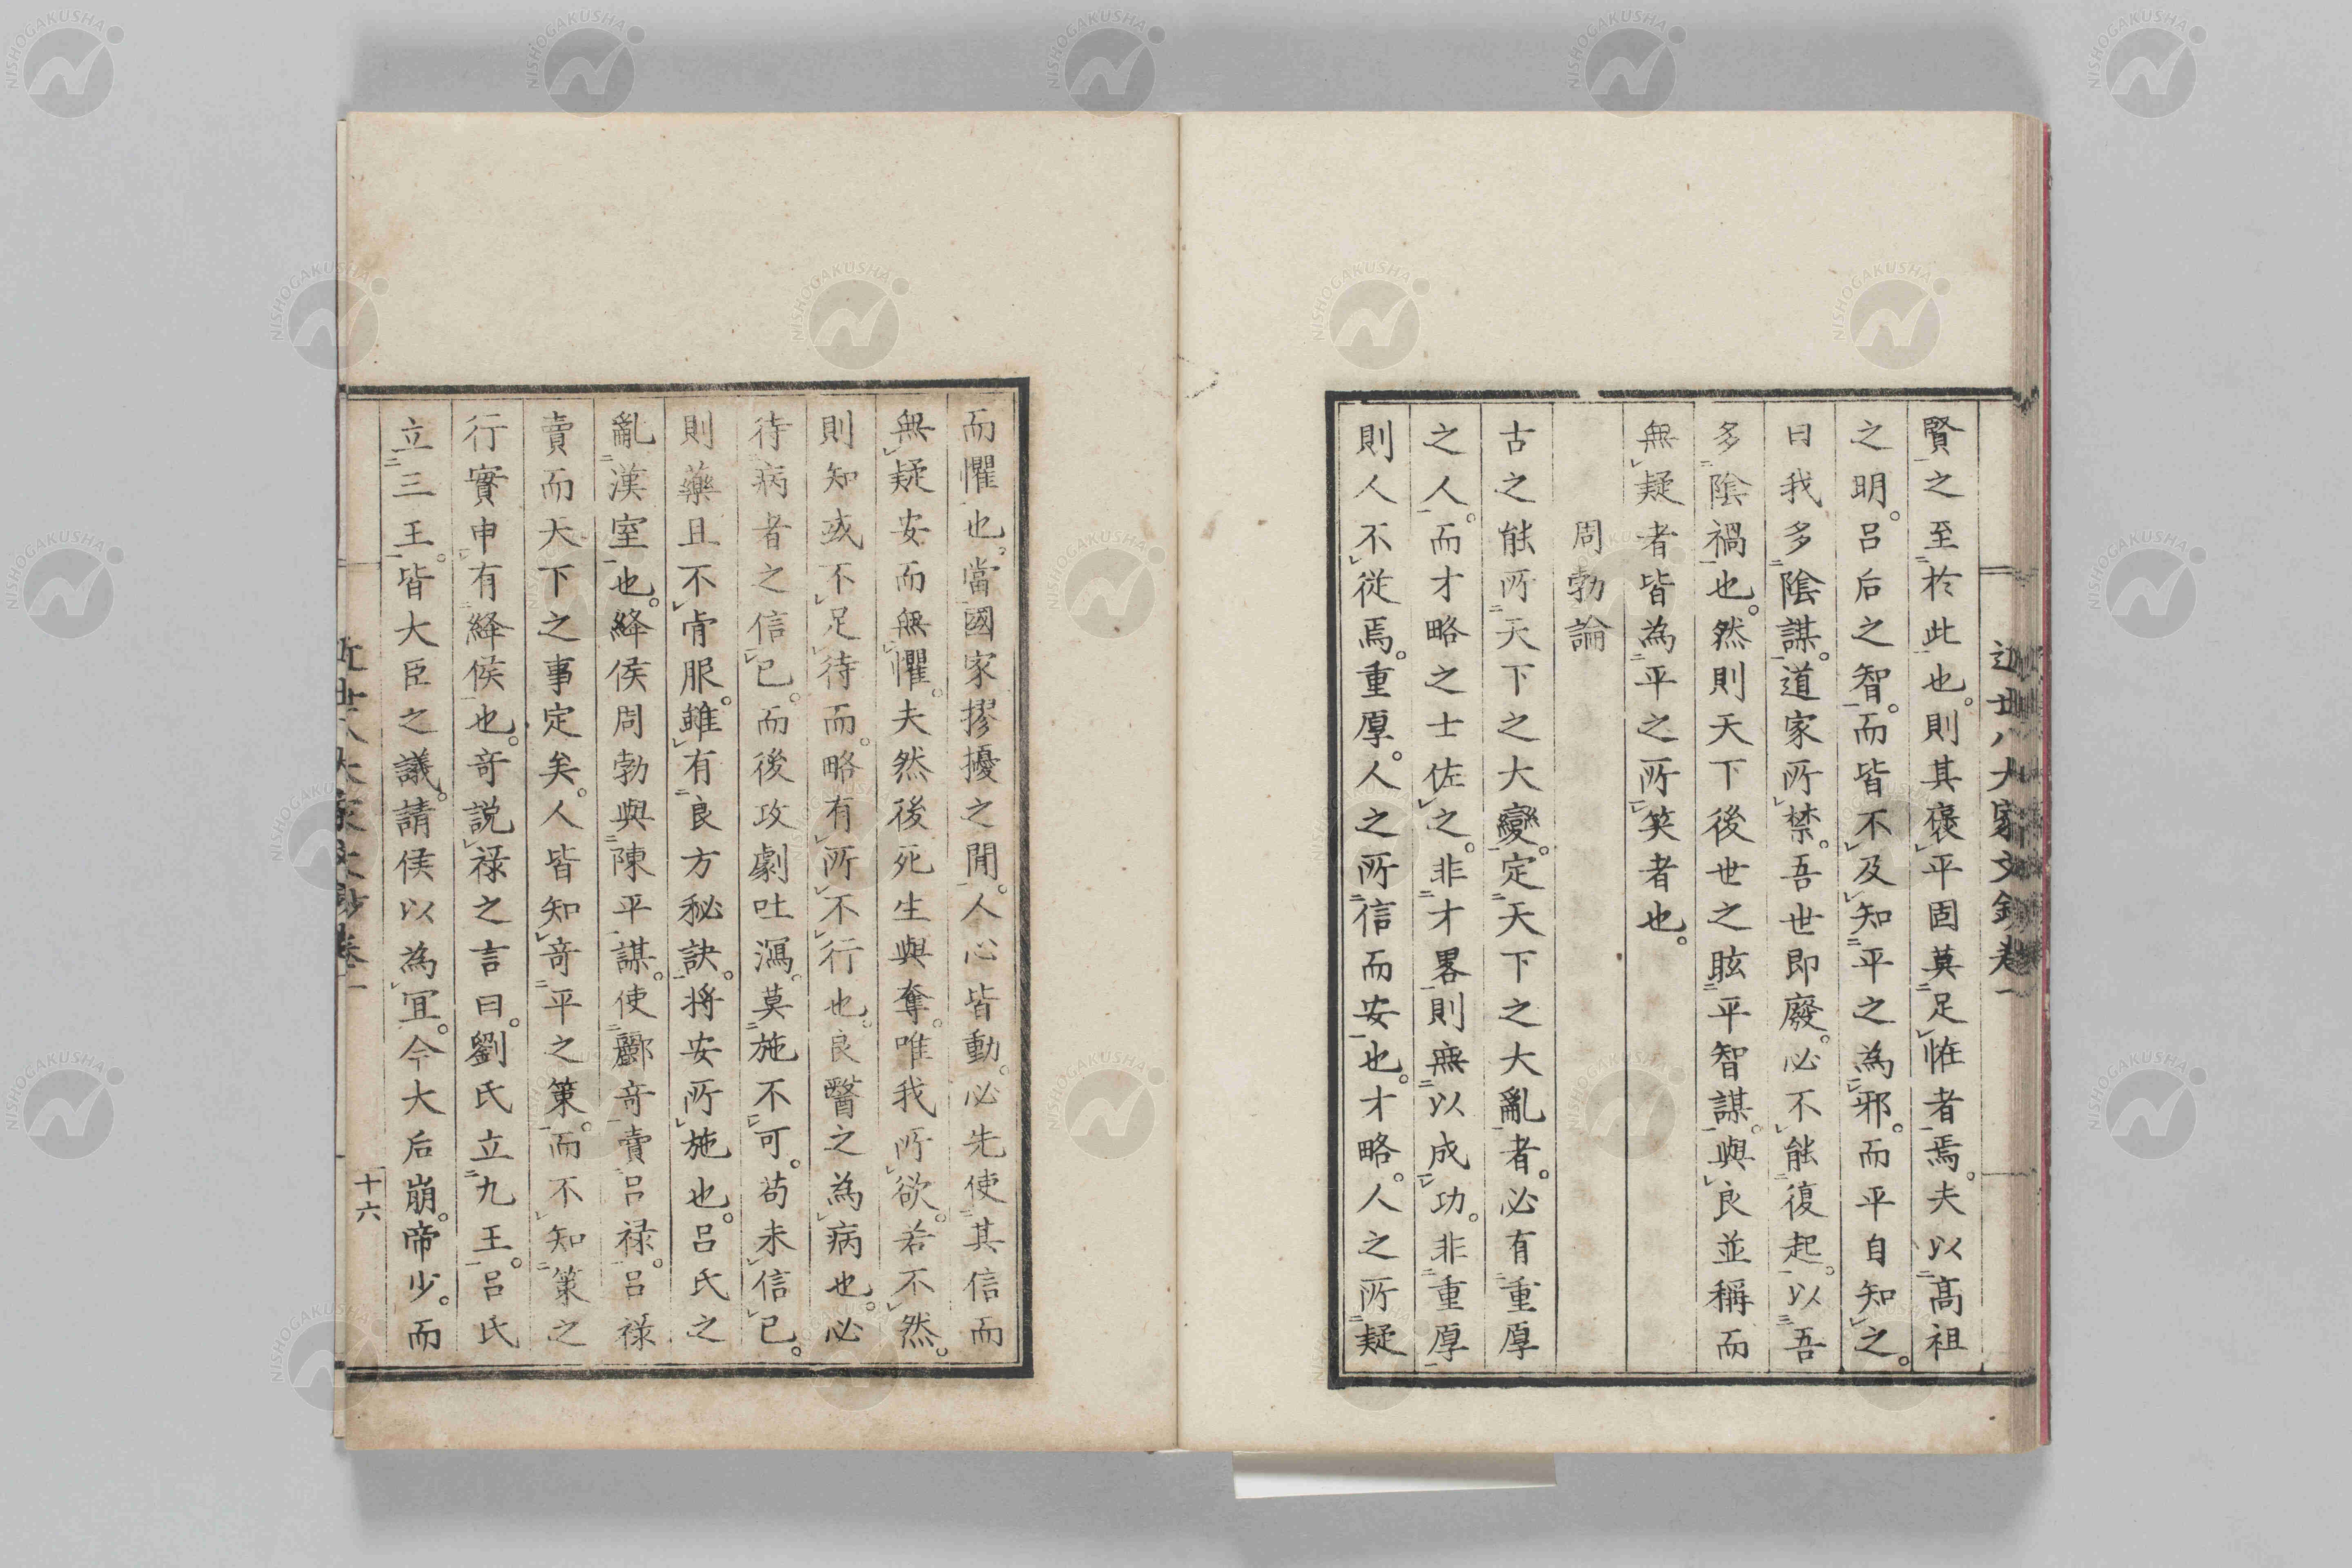 賢之至於此也。則其褒平固莫足恠者焉。夫以高祖
之明。呂后之智。而皆不及知平之為邪。而平自知之。
曰我多陰謀。道家所禁。吾世即廢。必不能復起。以吾
多陰禍也。然則天下後世之眩平智謀。與良並稱而
無疑者皆為平之所笑者也。
周勃論
古之能所天下之大變。定天下之大亂者。必有重厚
之人。而才略之士佐之。非才畧則無以成功。非重厚
則人不從焉。重厚。人之所信而安也。才略。人之所疑
而懼也。當國家摎擾之間。人心皆動。必先使其信而
無疑安而無懼。夫然後死生與奪。唯我所欲。若不然。
則知或不足待而。略有所不行也。良醫之為病也。必
待病者之信已。而後攻劇吐瀉。莫施不可。苟未信已。
則藥且不肯服。雖有良方秘訣。將安所施也。呂氏之
亂漢室也。絳侯周勃與陳平謀。使酈竒賣呂禄。呂禄
賣而天下之事定矣。人皆知竒平之策。而不知策之
行實申有絳侯也。竒説禄之言曰。劉氏立九王。呂氏
立三王。皆大臣之議。請侯以為宜。今大后崩。帝少。而
近世八大家文鈔卷一
十六